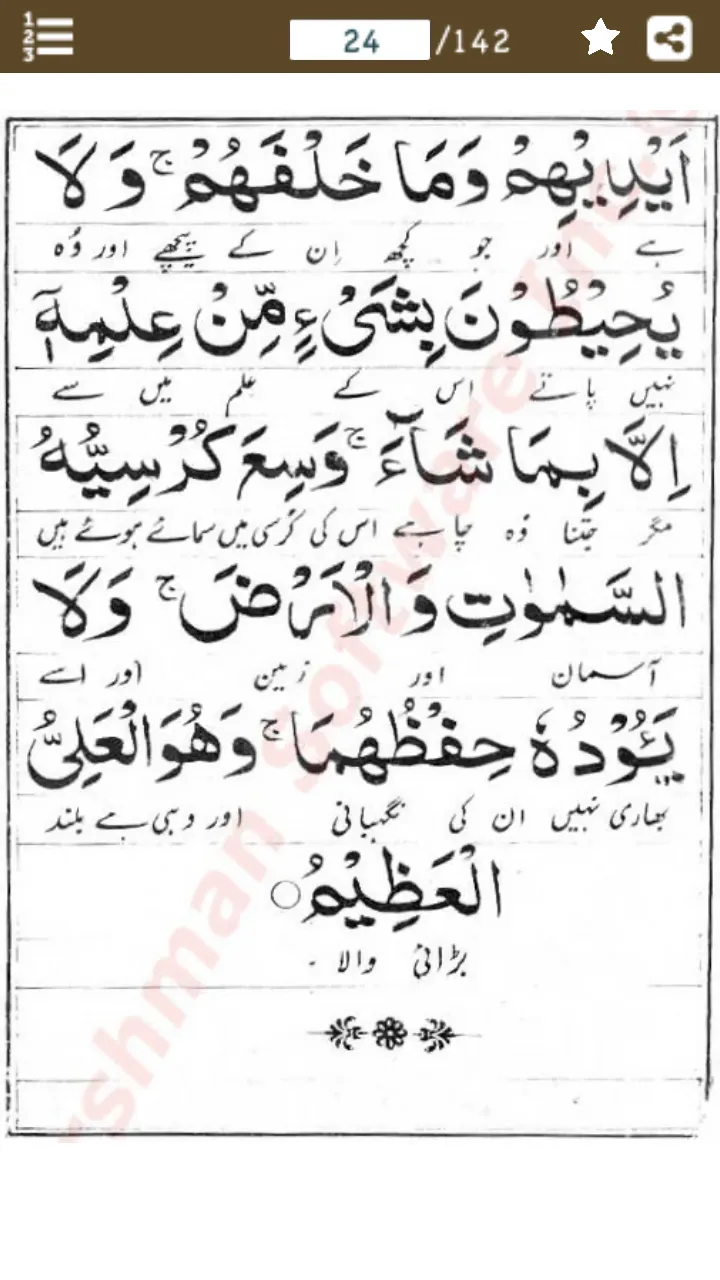 1
2
3
24 /142
اَيْدِيْهِمْ وَمَا خَلْفَهُمْ ۚ وَلَا
ہے اور جو کچھ اِن کے پیچھے اور وُہ
يُحِيْطُوْنَ بِشَیْءٍ مِّنْ عِلْمِهٖٓ
نہیں پاتے اس کے علم میں سے
اِلَّا بِمَا شَآءَ ۚ وَسِعَ كُرْسِيُّهُ
مگر جتنا وُہ چاہے اس کی کُرسی میں سمائے ہوئے ہیں
السَّمٰوٰتِ وَالْاَرْضَ ۚ وَلَا
آسمان اور زمین اور اسے
يَـُٔوْدُهٗ حِفْظُهُمَا ۚ وَهُوَ الْعَلِیُّ
بھاری نہیں ان کی نگہبانی اور وہی ہے بلند
الْعَظِيْمُ ○
بڑائی والا ۔
shman Software Inc.